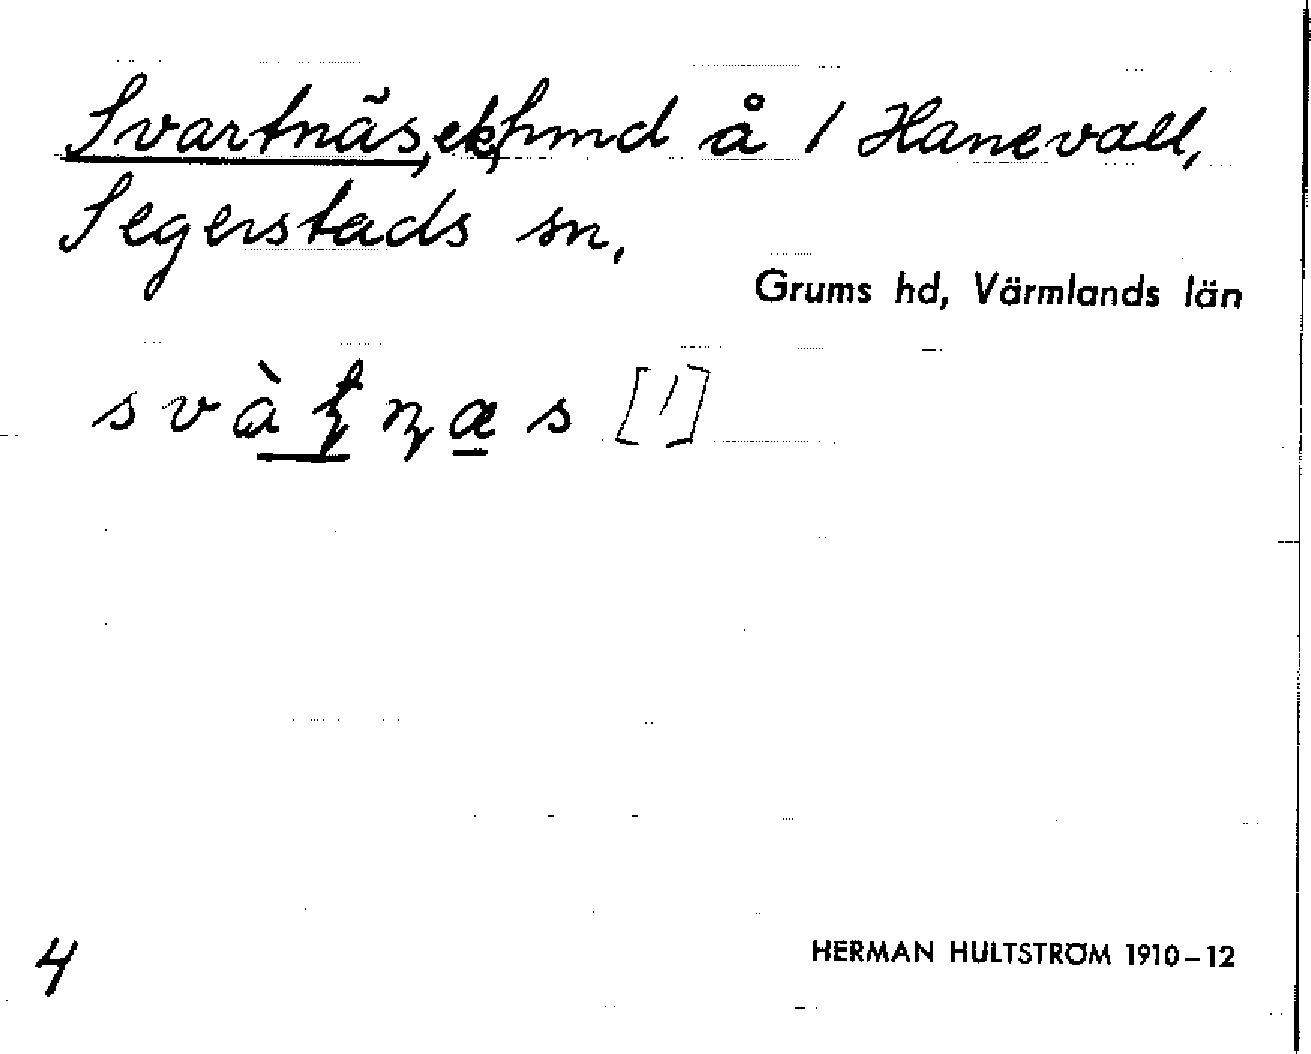 Svartnäs, ek, hmd å 1 Hanevall,
Segerstads sn.
Grums hd, Värmlands län
[1]
4
HERMAN HULTSTRÖM 1910–12